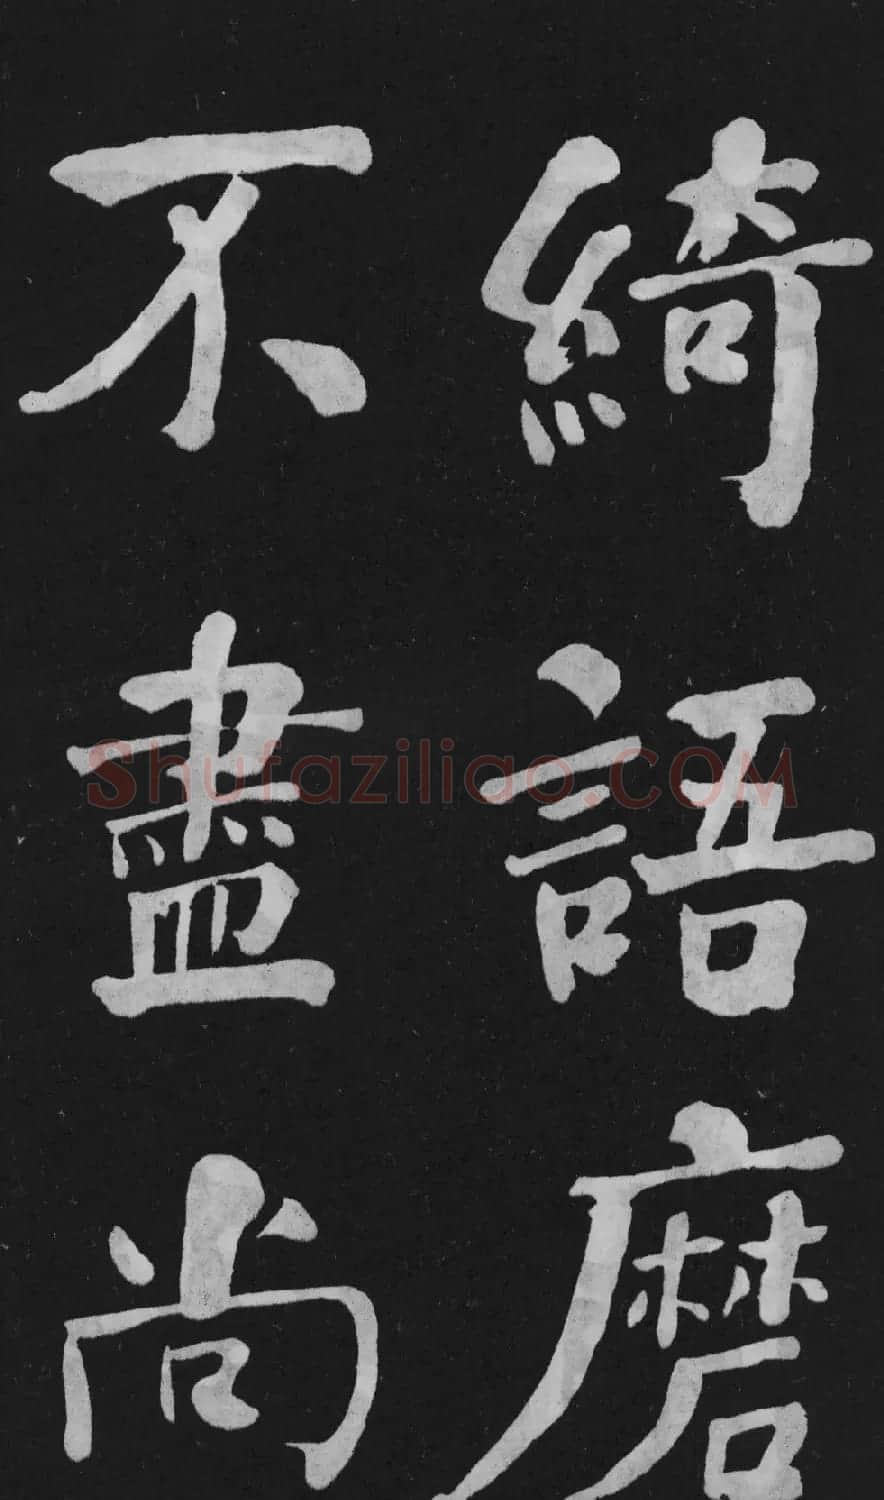 綺語磨
不盡尚
Shufaziliao.COM